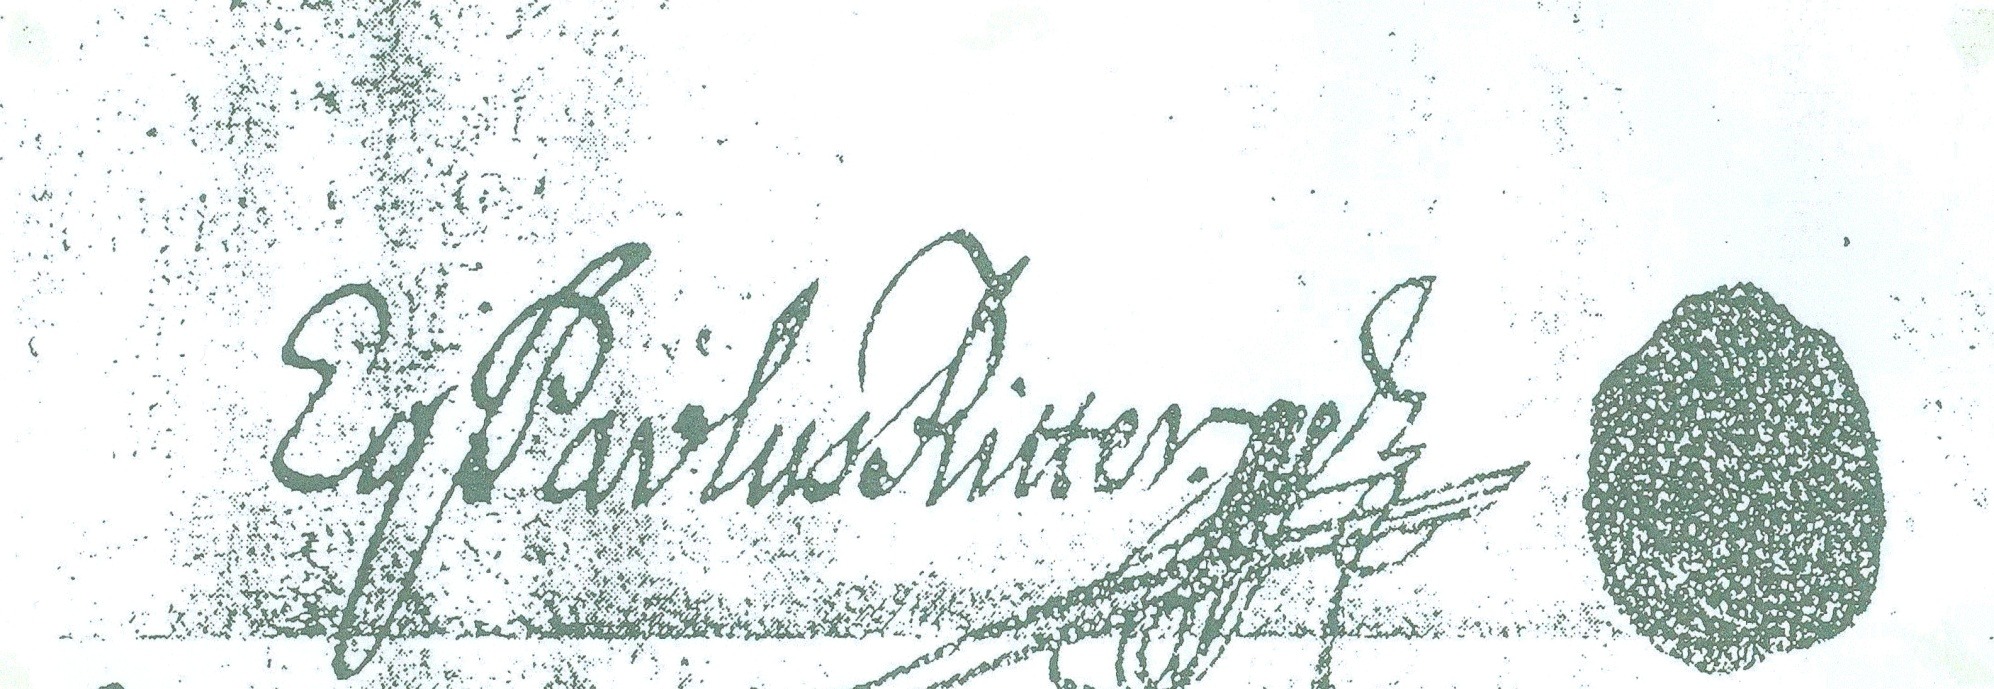 Eq Paulus Ritter